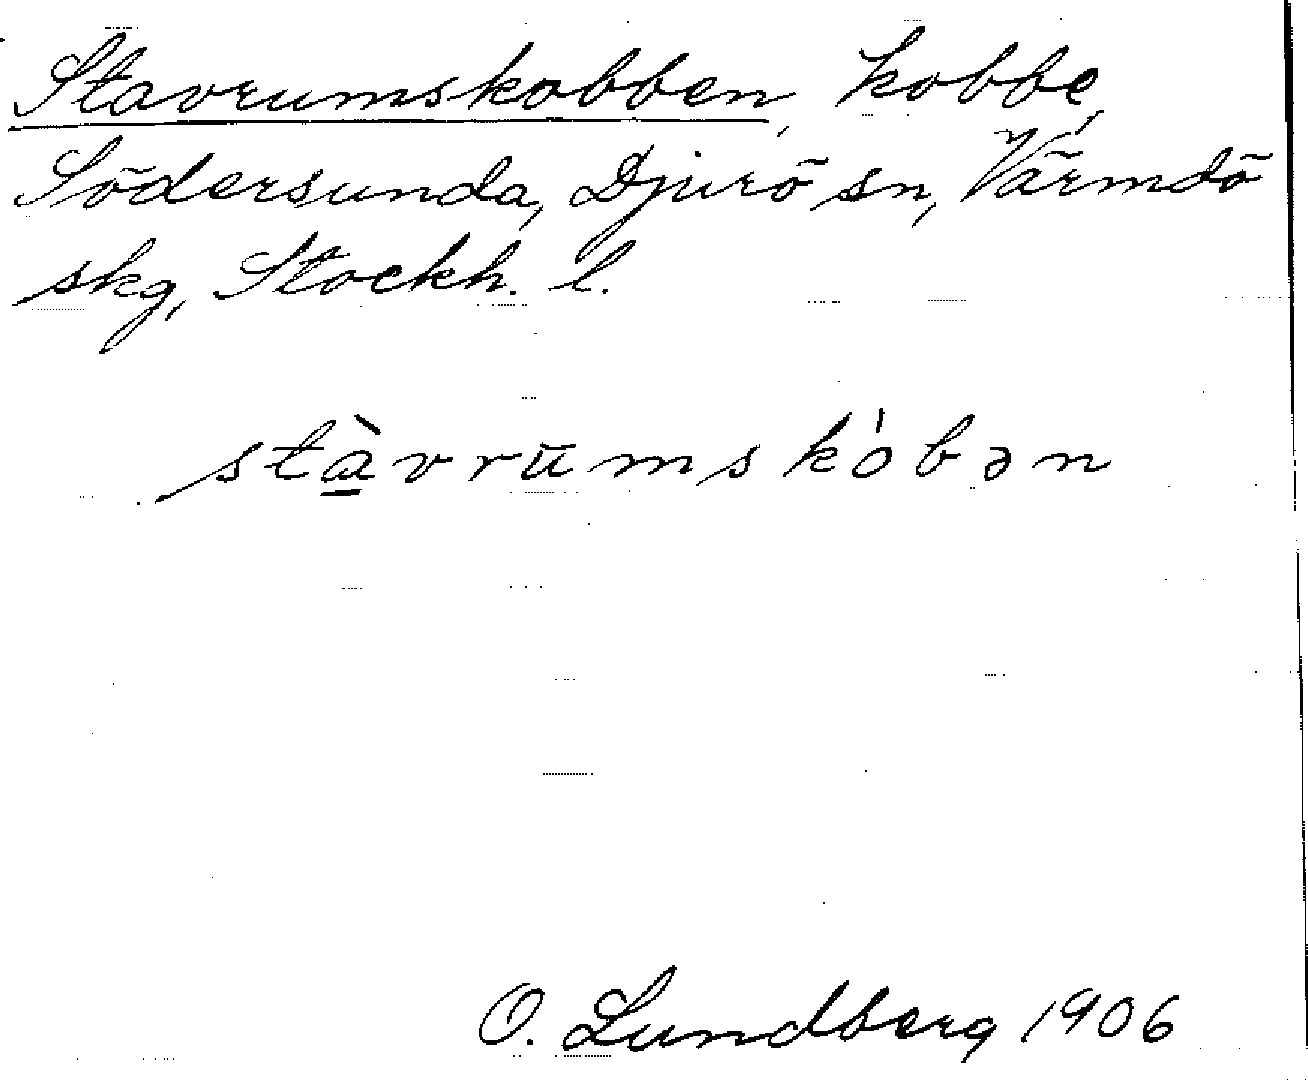 Stavrumskobben, kobbe,
Södersunda, Djurö sn, Värmdö
skg, Stockh. l.
stà̱vrūmskóbən
O. Lundberg 1906